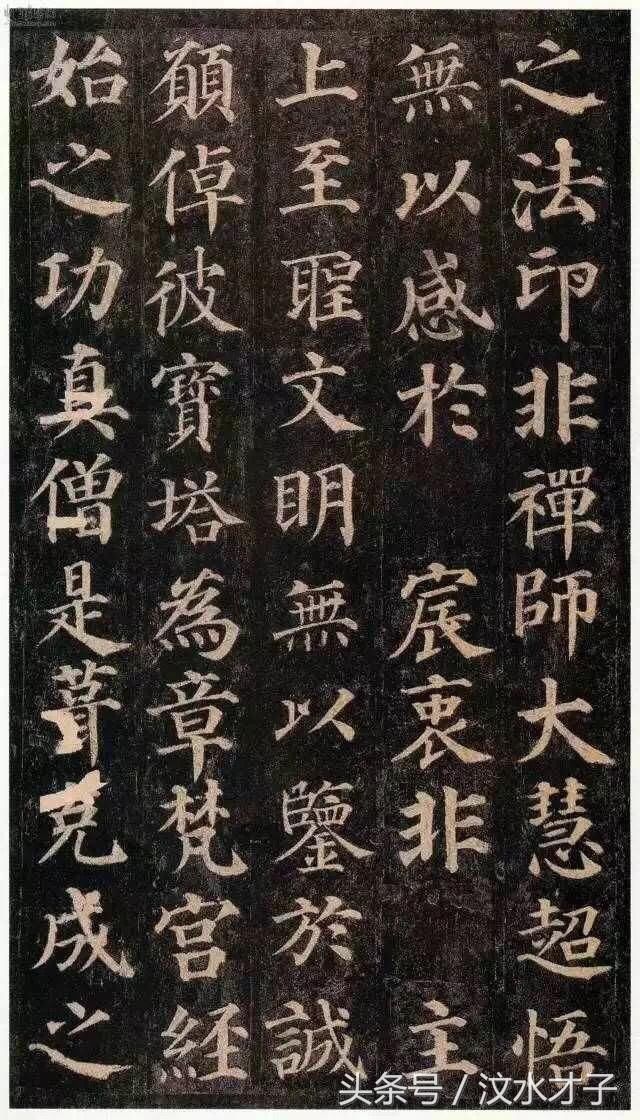 之法印非禪師大慧超悟
無以感於 宸衷非 主
上至聖文明無以鑒於誠
願倬彼寶塔為章梵宮經
始之功真僧是葺克成之
头条号 / 汶水才子